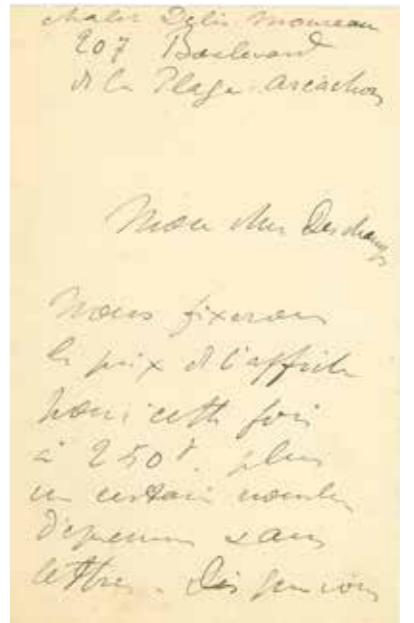 chalet Delis Moureau
207 Boulevard
de la Plage. Arcachon
Mon cher Deschamps
Nous fixerons
le prix de l'affiche
pour cette fois
à 250f. plus
un certain nombre
d'épreuves sans
lettres. Dès que